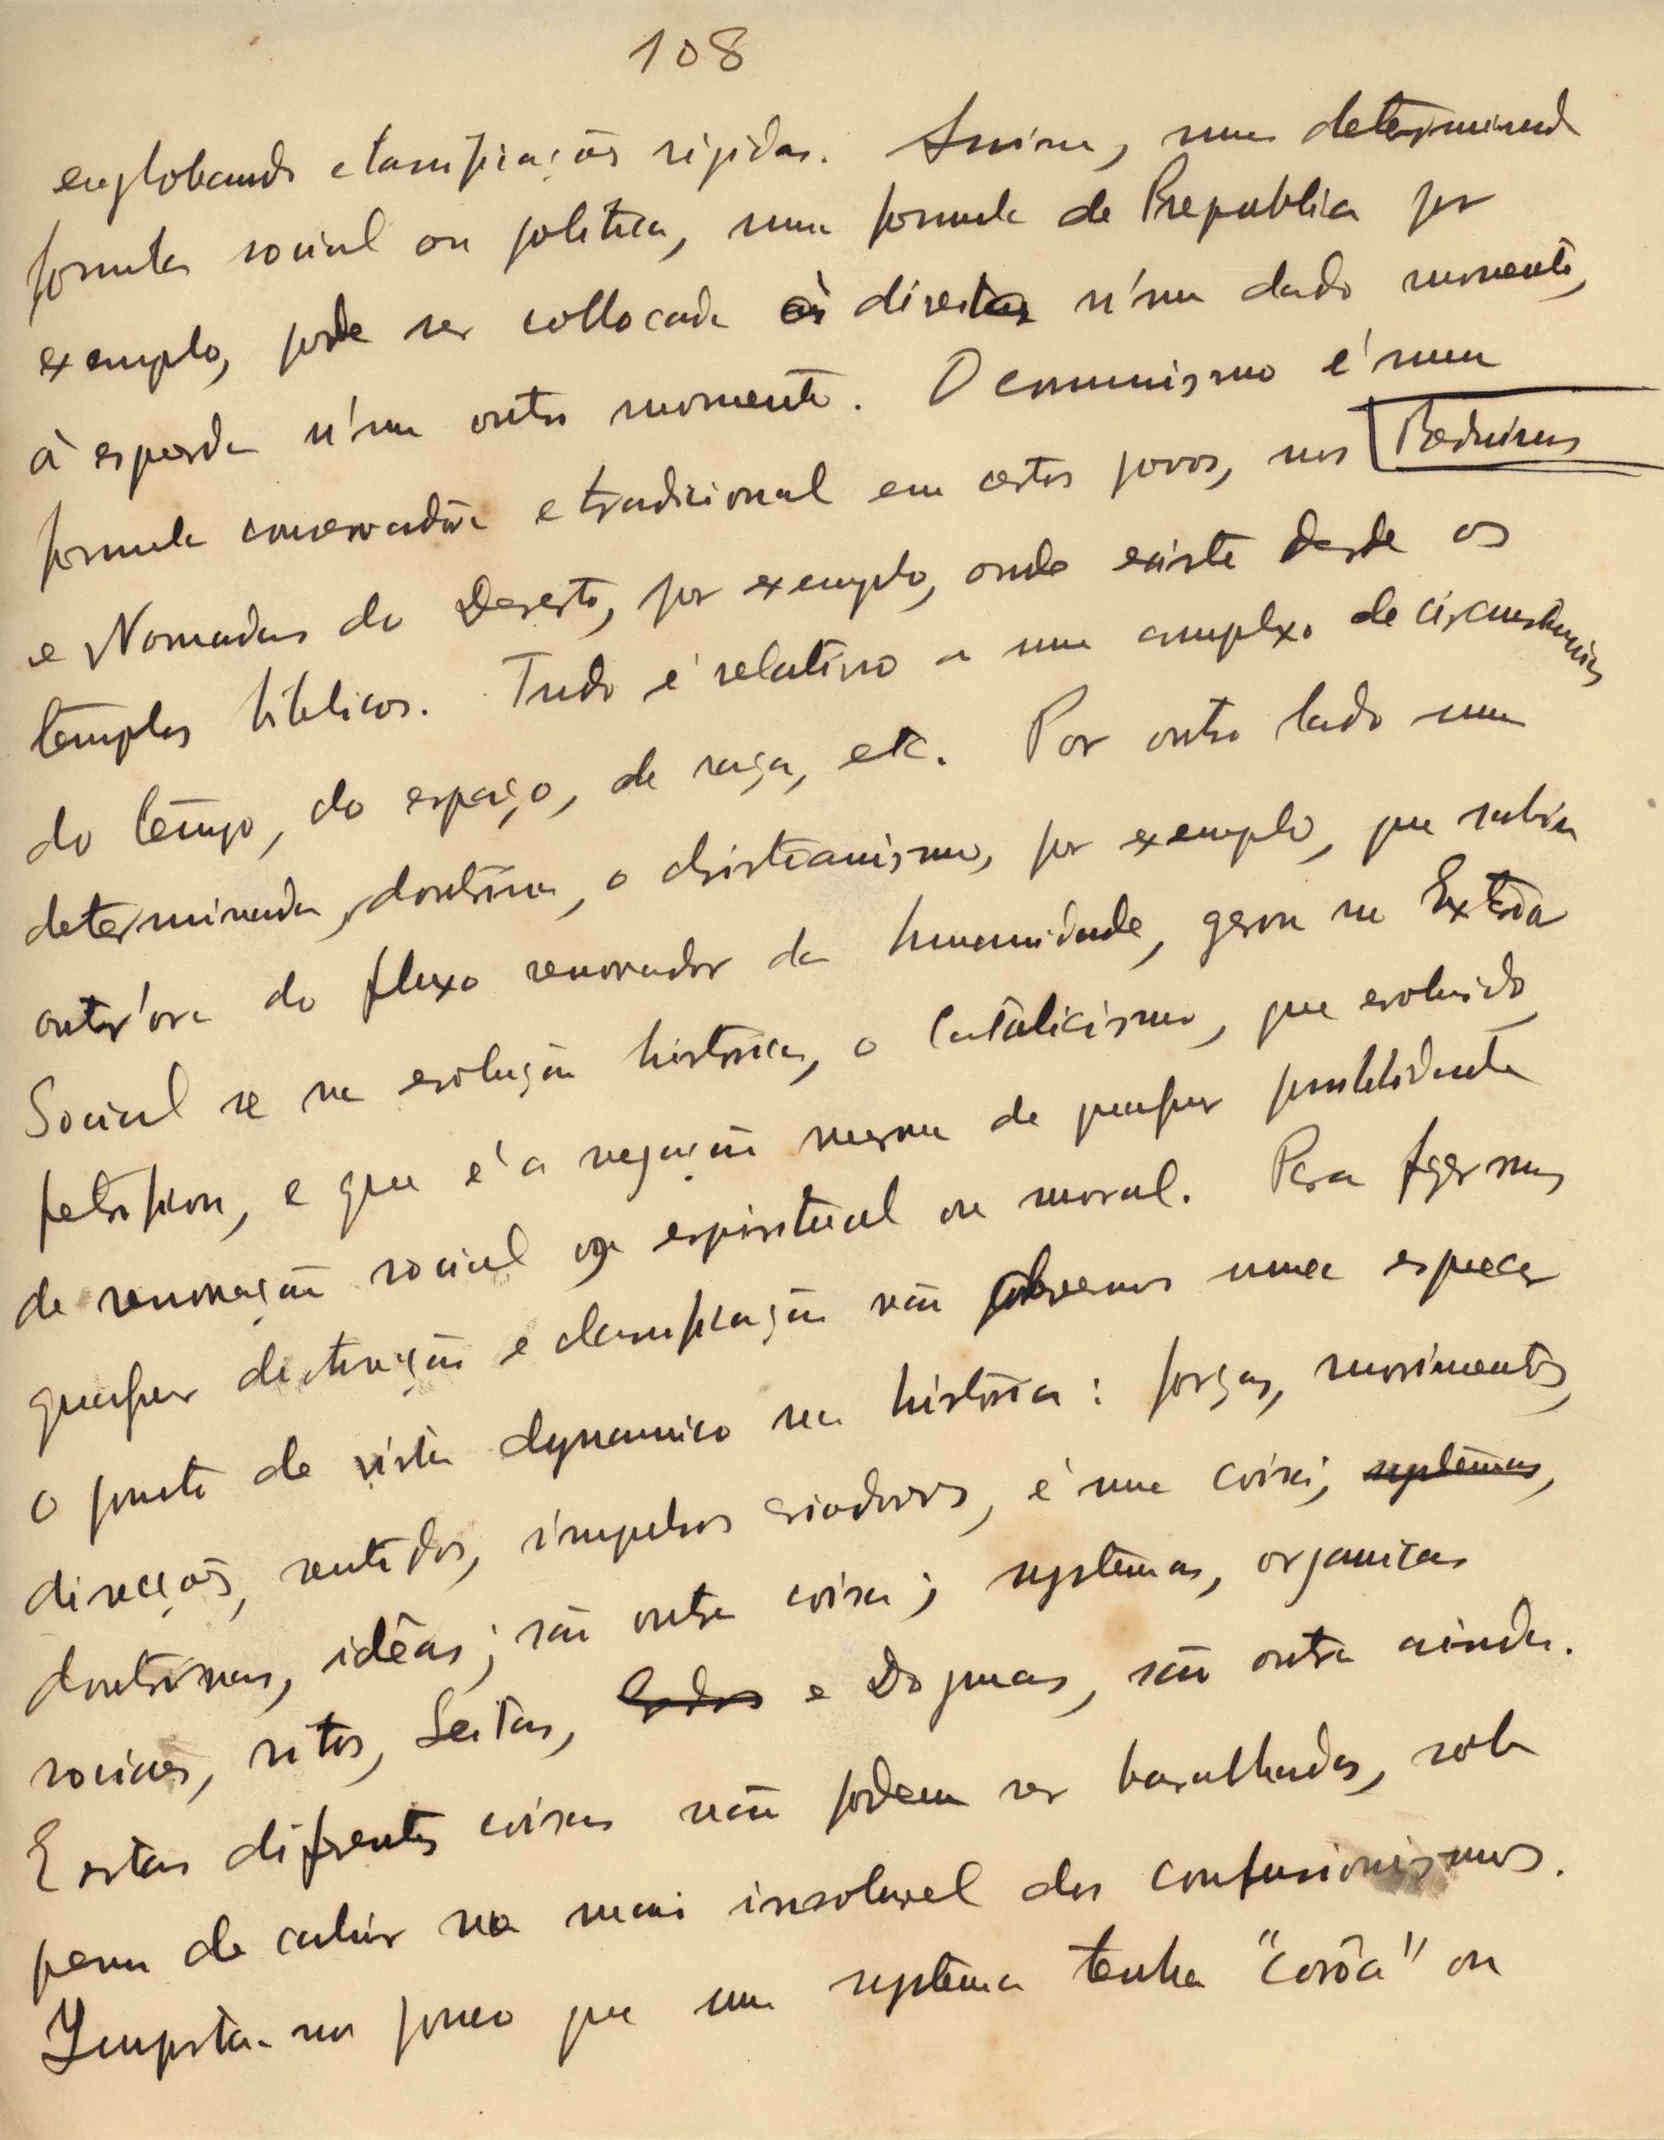 108
englobando classificações rigidas. Assim, uma determinada
formula social ou politica, uma formula de Republica por
exemplo, pode ser collocada ás direitas n'um dado momento,
à esquerda n'um outro momento. O communismo é uma
formula conservadôra e tradicional em certos povos, nos Beduinos
e Nomadas do Deserto, por exemplo, onde existe desde os
tempos biblicos. Tudo é relativo a um complexo de circumstancias
do tempo, do espaço, de raça, etc. Por outro lado uma
determinada doutrina, o christianismo, por exemplo, que sahiu
outr'ora do fluxo renovador da humanidade, gerou na
Social se na evolução historica, o Catolicismo, que evoluido
petrificou, e que é a negação mesma de qualquer possibilidade
de renovação social ou espiritual ou moral. Para fazermos
qualquer distincção e classificação não devemos nunca esquecer
o ponto de vista dynamico na história: forças, movimentos,
direcções, sentidos, impulsos criadores, é uma coisa; systemas,
doutrinas, idêas; são outra coisa; systemas, organicas
sociaes, ritos, Seitas, e Dogmas, são outra ainda.
E estas diferentes coisas não podem ser baralhadas, sob
pena de cahir no mais insoluvel dos confusionismos.
Importa-nos pouco que um systema tenha "corôa" ou